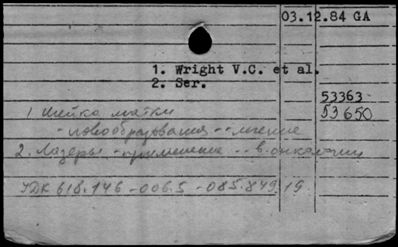 03.12.84 GA
1. Wright V.C. et al.
2. Ser.
53363
53650
1. Шейка матки
- новообразования -- лечение
2. Лазеры - применение -- в онкологии
УДК 618.146-006.5-085.849.19